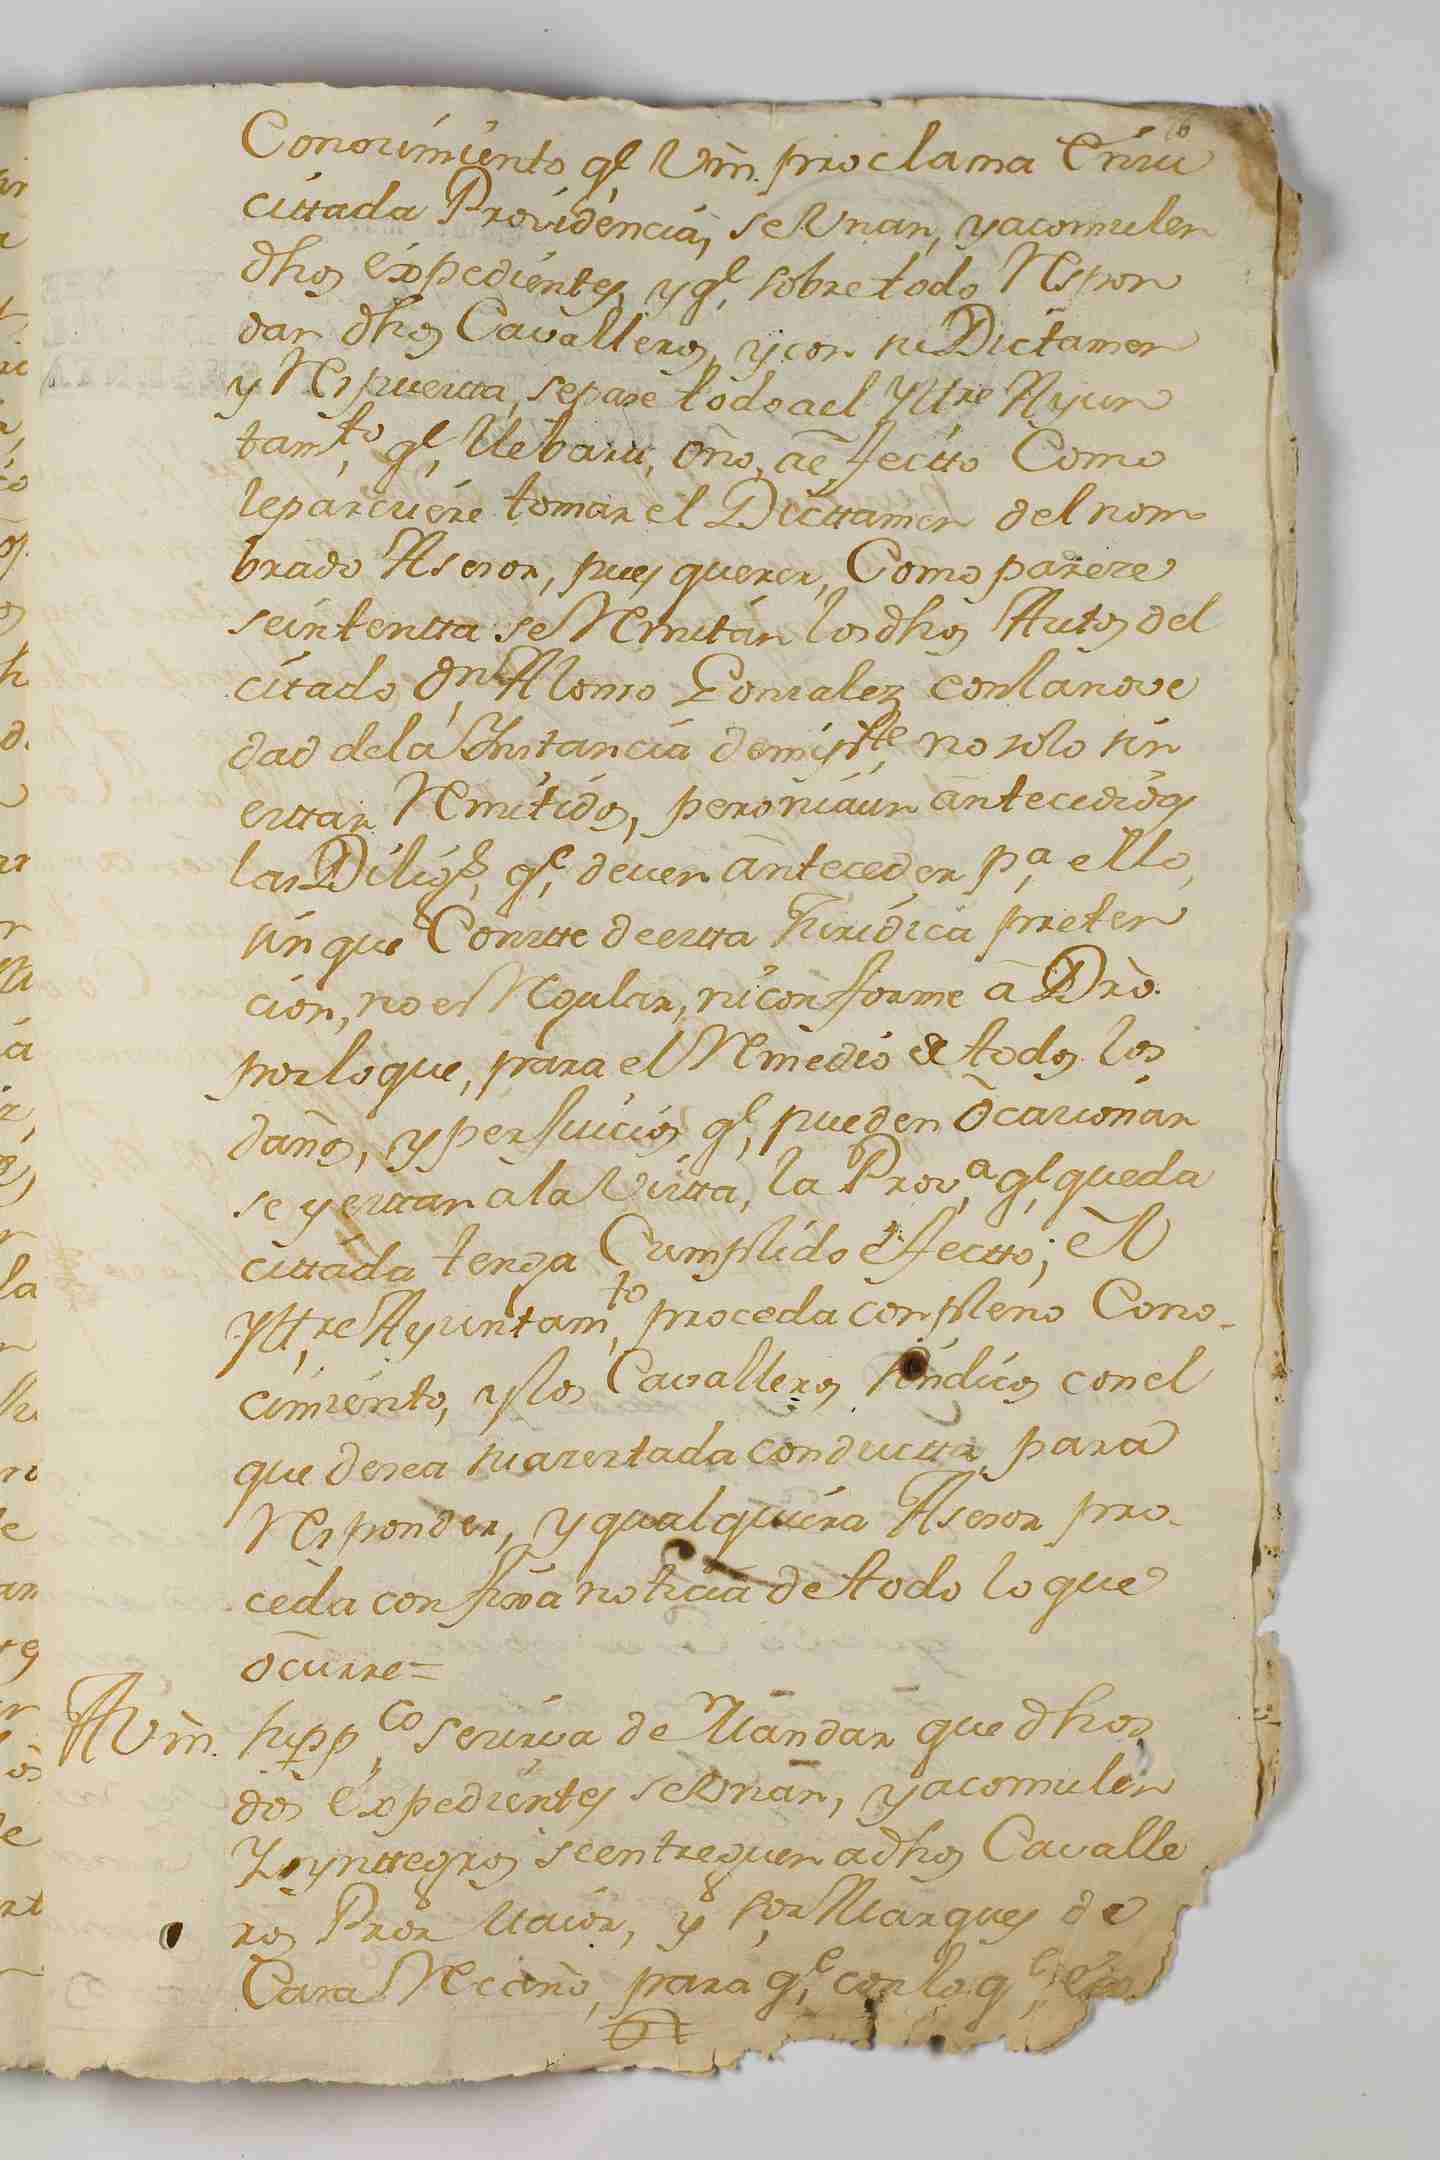 Conosimiento q.e Vm. proclama En su
cittada Providencia, se Vnan, y acomulen
dhos expedientes, y q.e sobre todo Respon
dan dhos Cavalleros, y con su Dictamen
y Respuesta, se pase todo a el Yltre Ayun
tam.to, q.e llebara, ôno, aêfectto Como
le pareciere tomar el Dicttamen del nom
brado Asesor, pues querer, Como parece
se intentta se Remitan los dhos Autos del
citado dn Alonso Gonzalez con la nove
dad de la Ynstancia de mi p.te no solo sin
esttar Remitidos, pero ni aun antecedidos
las Dilig.s q.e deven anteceder p.a ello,
sin que Constte de estta Juridica preten
cion, no es Regular, ni conforme â Dro.
por lo que, para el Remedio de todos los
daños, y perjuicios q.e pueden ôcacionar
se y esttan a la Vistta, la Prov.a q.e queda
cittada tenga Cumplido êfectto; el
Yltre Ayuntam.to proceda con pleno Cono-
cimiento, y los Cavalleros sindicos con el
que desea su asertada conductta para
Responder, y qualquiera Asesor pro-
ceda con fixa noticia de todo lo que
ôcurre=
A Vm. supp.co se sirva de Mandar que dhos
dos expedientes se Vnan, y acomulen
Y ynttegros se entreguen a dhos Cavalle
ros Pror Maior, y s.or Marques de
Casa Recaño, para q.e con lo q.e